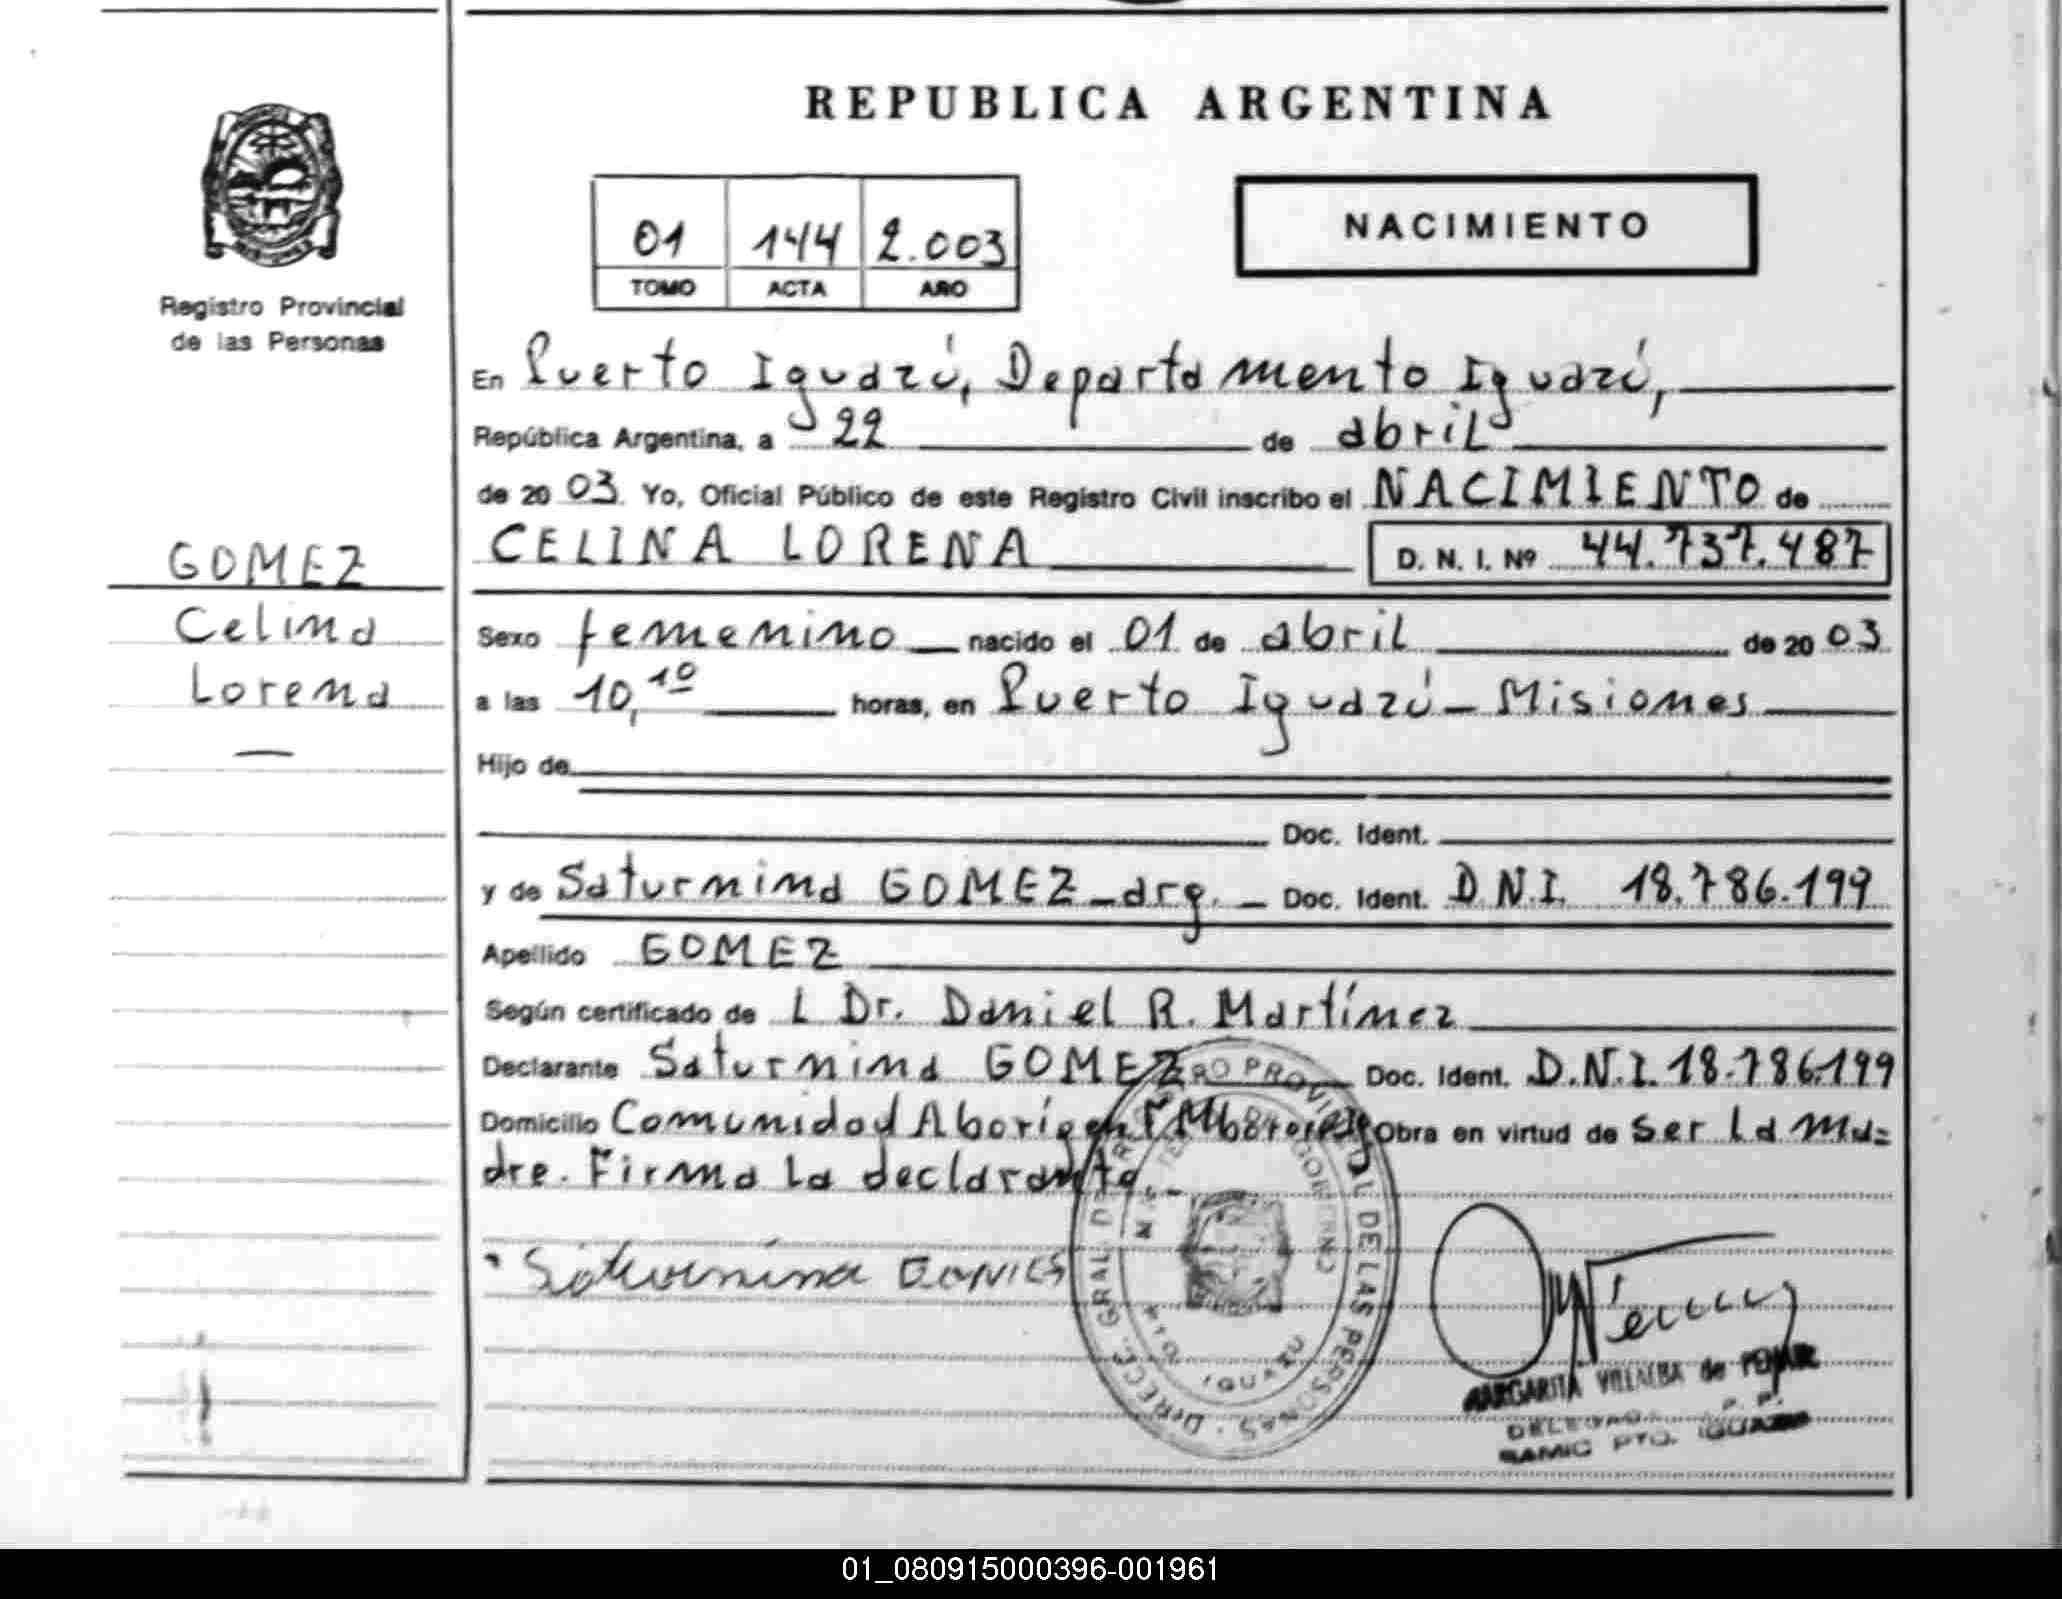 REPUBLICA ARGENTINA
Registro Provincial
de las Personas
01 144 2.003
TOMO ACTA AÑO
NACIMIENTO
GOMEZ
Celina
Lorena
En Puerto Iguazú, Departamento Iguazú,
República Argentina, a 22 de abril
de 20 03. Yo, Oficial Público de este Registro Civil inscribo el NACIMIENTO de
CELINA LORENA D. N. I. Nº 44.737.487
Sexo femenino nacido el 01 de abril de 20 03
a las 10,10 horas, en Puerto Iguazú - Misiones
Hijo de
Doc. Ident.
y de Saturnina GOMEZ - arg. - Doc. Ident. D.N.I. 18.786.199
Apellido GOMEZ
Según certificado de L Dr. Daniel R. Martínez
Declarante Saturnina GOMEZ Doc. Ident. D.N.I. 18.786.199
Domicilio Comunidad Aborigen Obra en virtud de ser la ma=
dre. Firma la declarante.-
Saturnina
DIRECC. GRAL. DE PROVINCIAL DE LAS PERSONAS
PTO. IGUAZU
MARGARITA VILLALBA de
DELEGADA
SAMIC PTO. IGUAZU
01_080915000396-001961